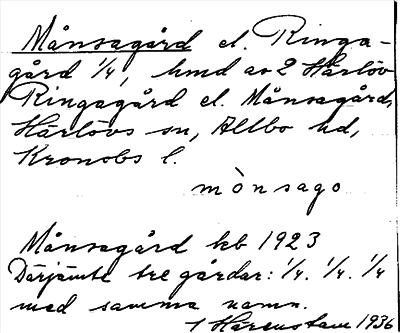 Månsagård el. Ringa-
gård 1/4, hmd av 2 Härlöv
Ringagård el. Månsagård,
Härlövs sn, Allbo hd,
Kronobs l.
mònsago
Månsagård kb 1923
Därjämte tre gårdar: 1/4. 1/4. 1/4
med samma namn.
Harenstam 1936